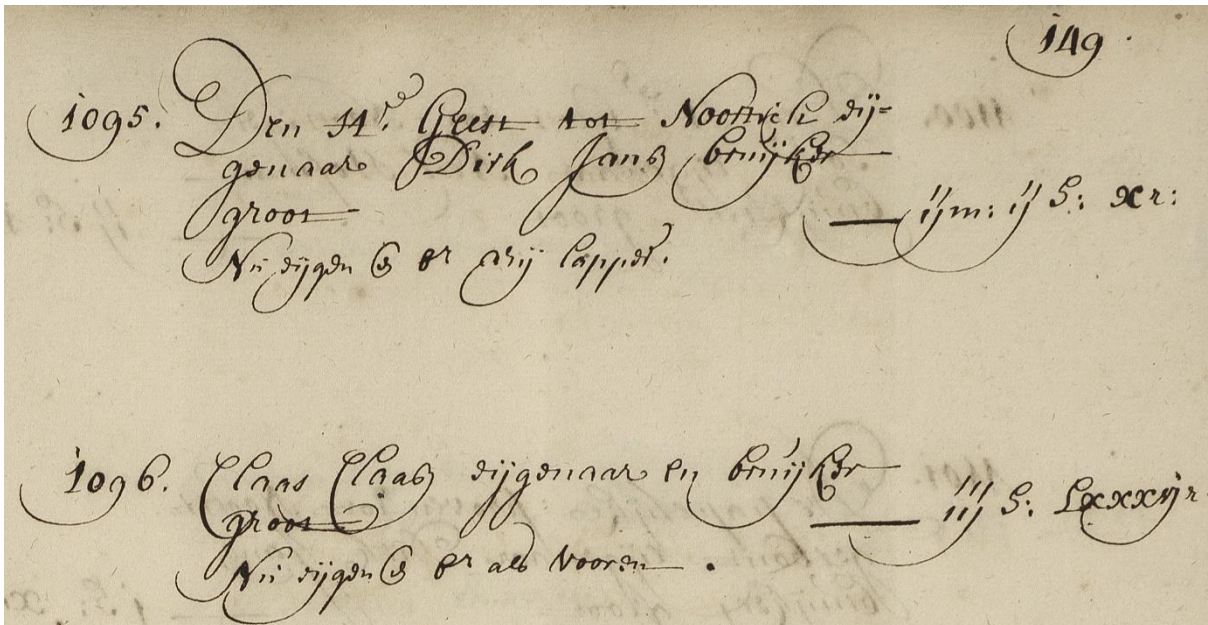 149.
1095. Den H.re Geest tot Noortich eij=
genaar Dirk Jansz bruijker
groot
ijm: ij h: xr:
Nu eijgen en br Arij Capper.
1096. Claas Claasz eijgenaar en bruijker
groot
iij h: Lxxxvijr
Nu eijgen en br als vooren.